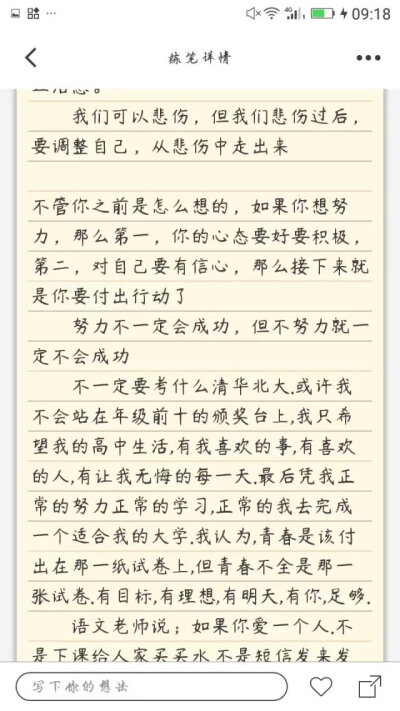 09:18
练笔详情
我们可以悲伤，但我们悲伤过后，
要调整自己，从悲伤中走出来
不管你之前是怎么想的，如果你想努
力，那么第一，你的心态要好要积极，
第二，对自己要有信心，那么接下来就
是你要付出行动了
努力不一定会成功，但不努力就一
定不会成功
不一定要考什么清华北大.或许我
不会站在年级前十的颁奖台上,我只希
望我的高中生活,有我喜欢的事,有喜欢
的人,有让我无悔的每一天.最后凭我正
常的努力正常的学习,正常的我去完成
一个适合我的大学.我认为,青春是该付
出在那一纸试卷上,但青春不全是那一
张试卷.有目标,有理想,有明天,有你,足够.
语文老师说；如果你爱一个人.不
是下课给人家买买水.不是短信发来发
写下你的想法